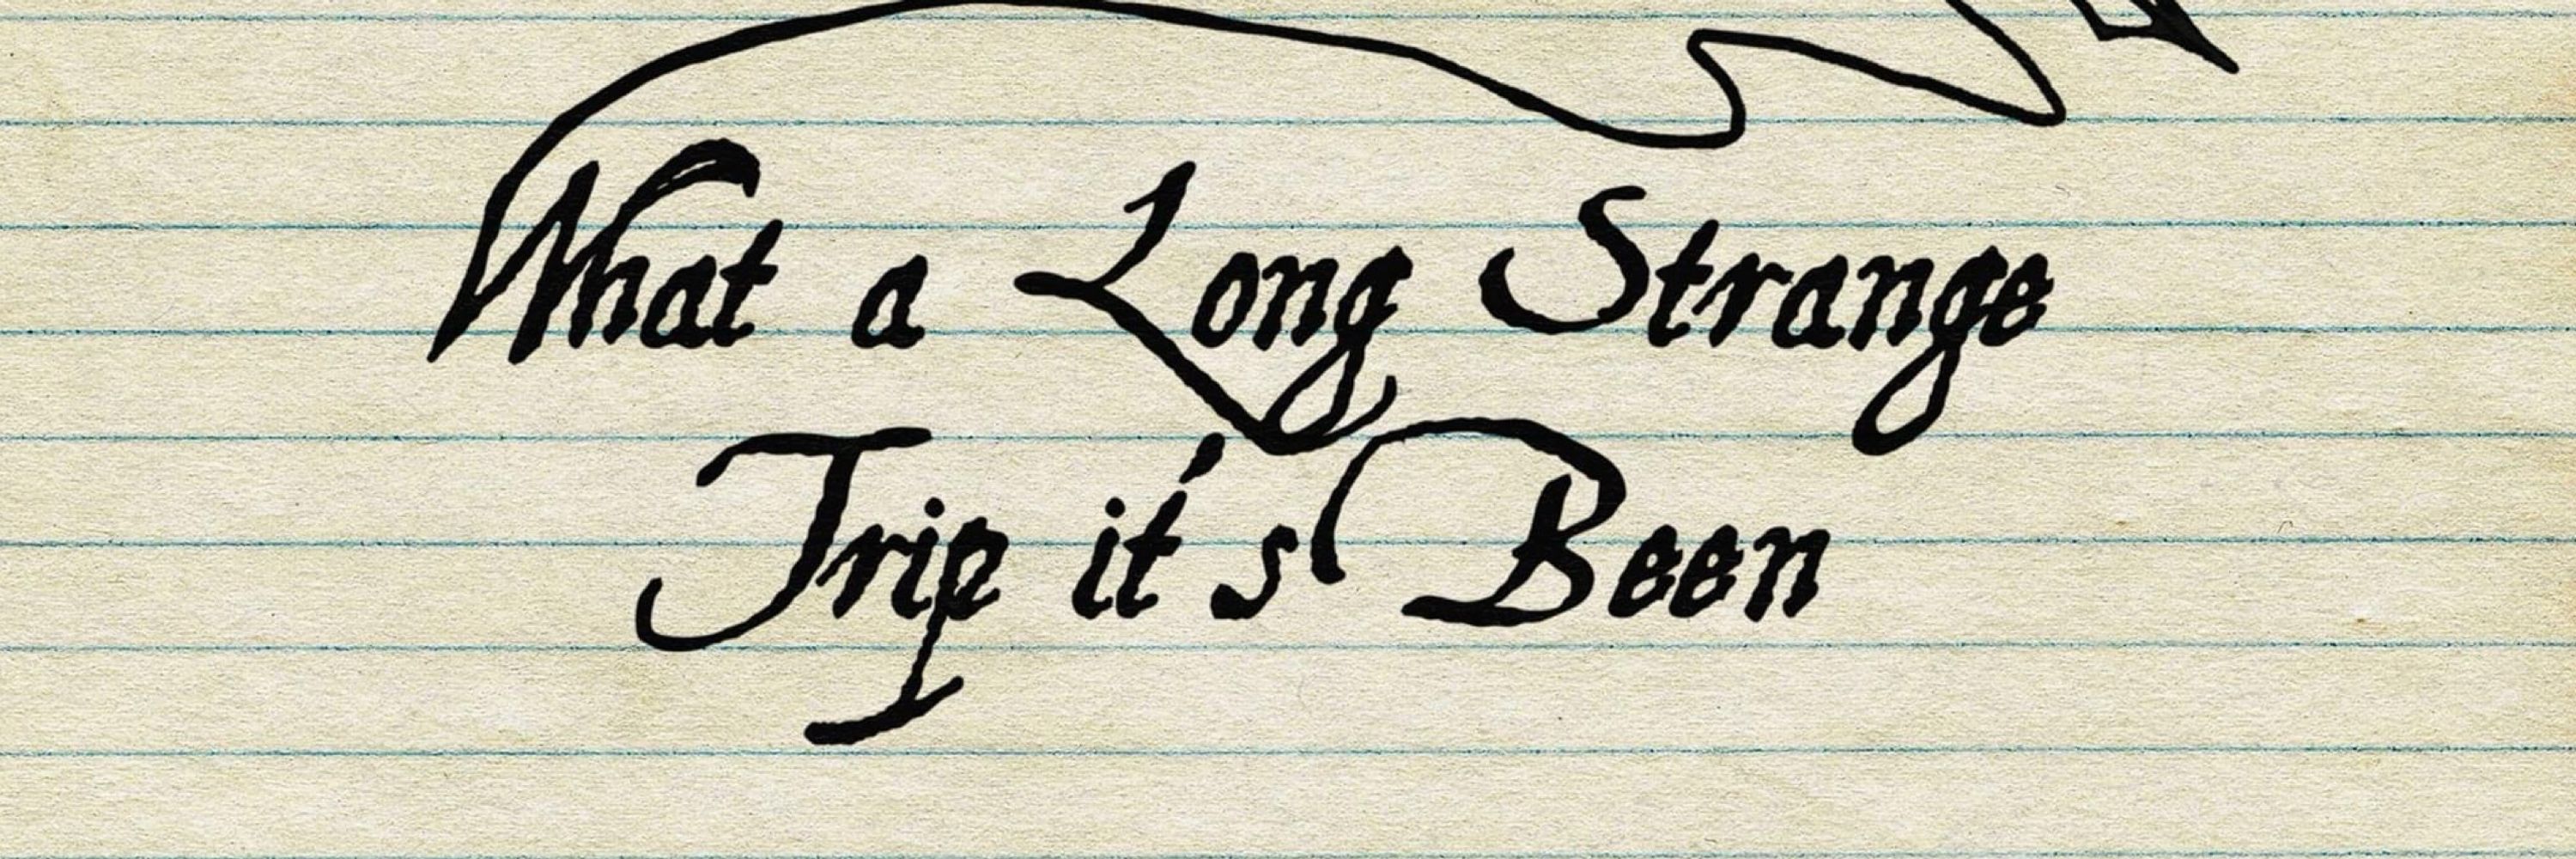 What a Long Strange
Trip it's Been